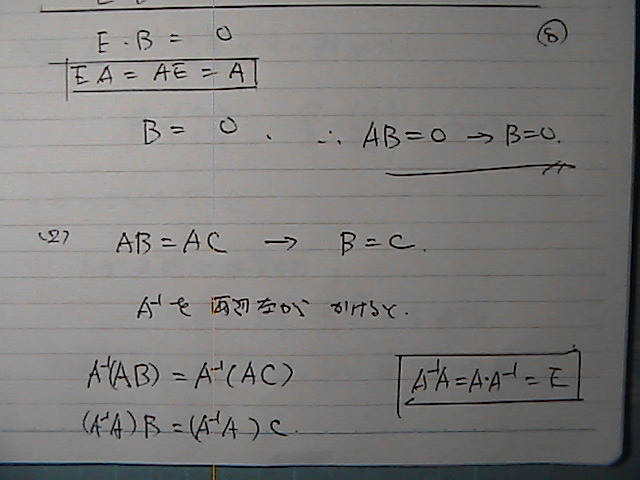 E・B = 0 ⑧
EA = AE = A
B = 0. ∴ AB=0 → B=0.
(2) AB=AC → B=C.
A⁻¹を両辺左から かけると.
A⁻¹(AB) = A⁻¹(AC) A⁻¹A=A・A⁻¹=E
(A⁻¹A)B=(A⁻¹A)C.